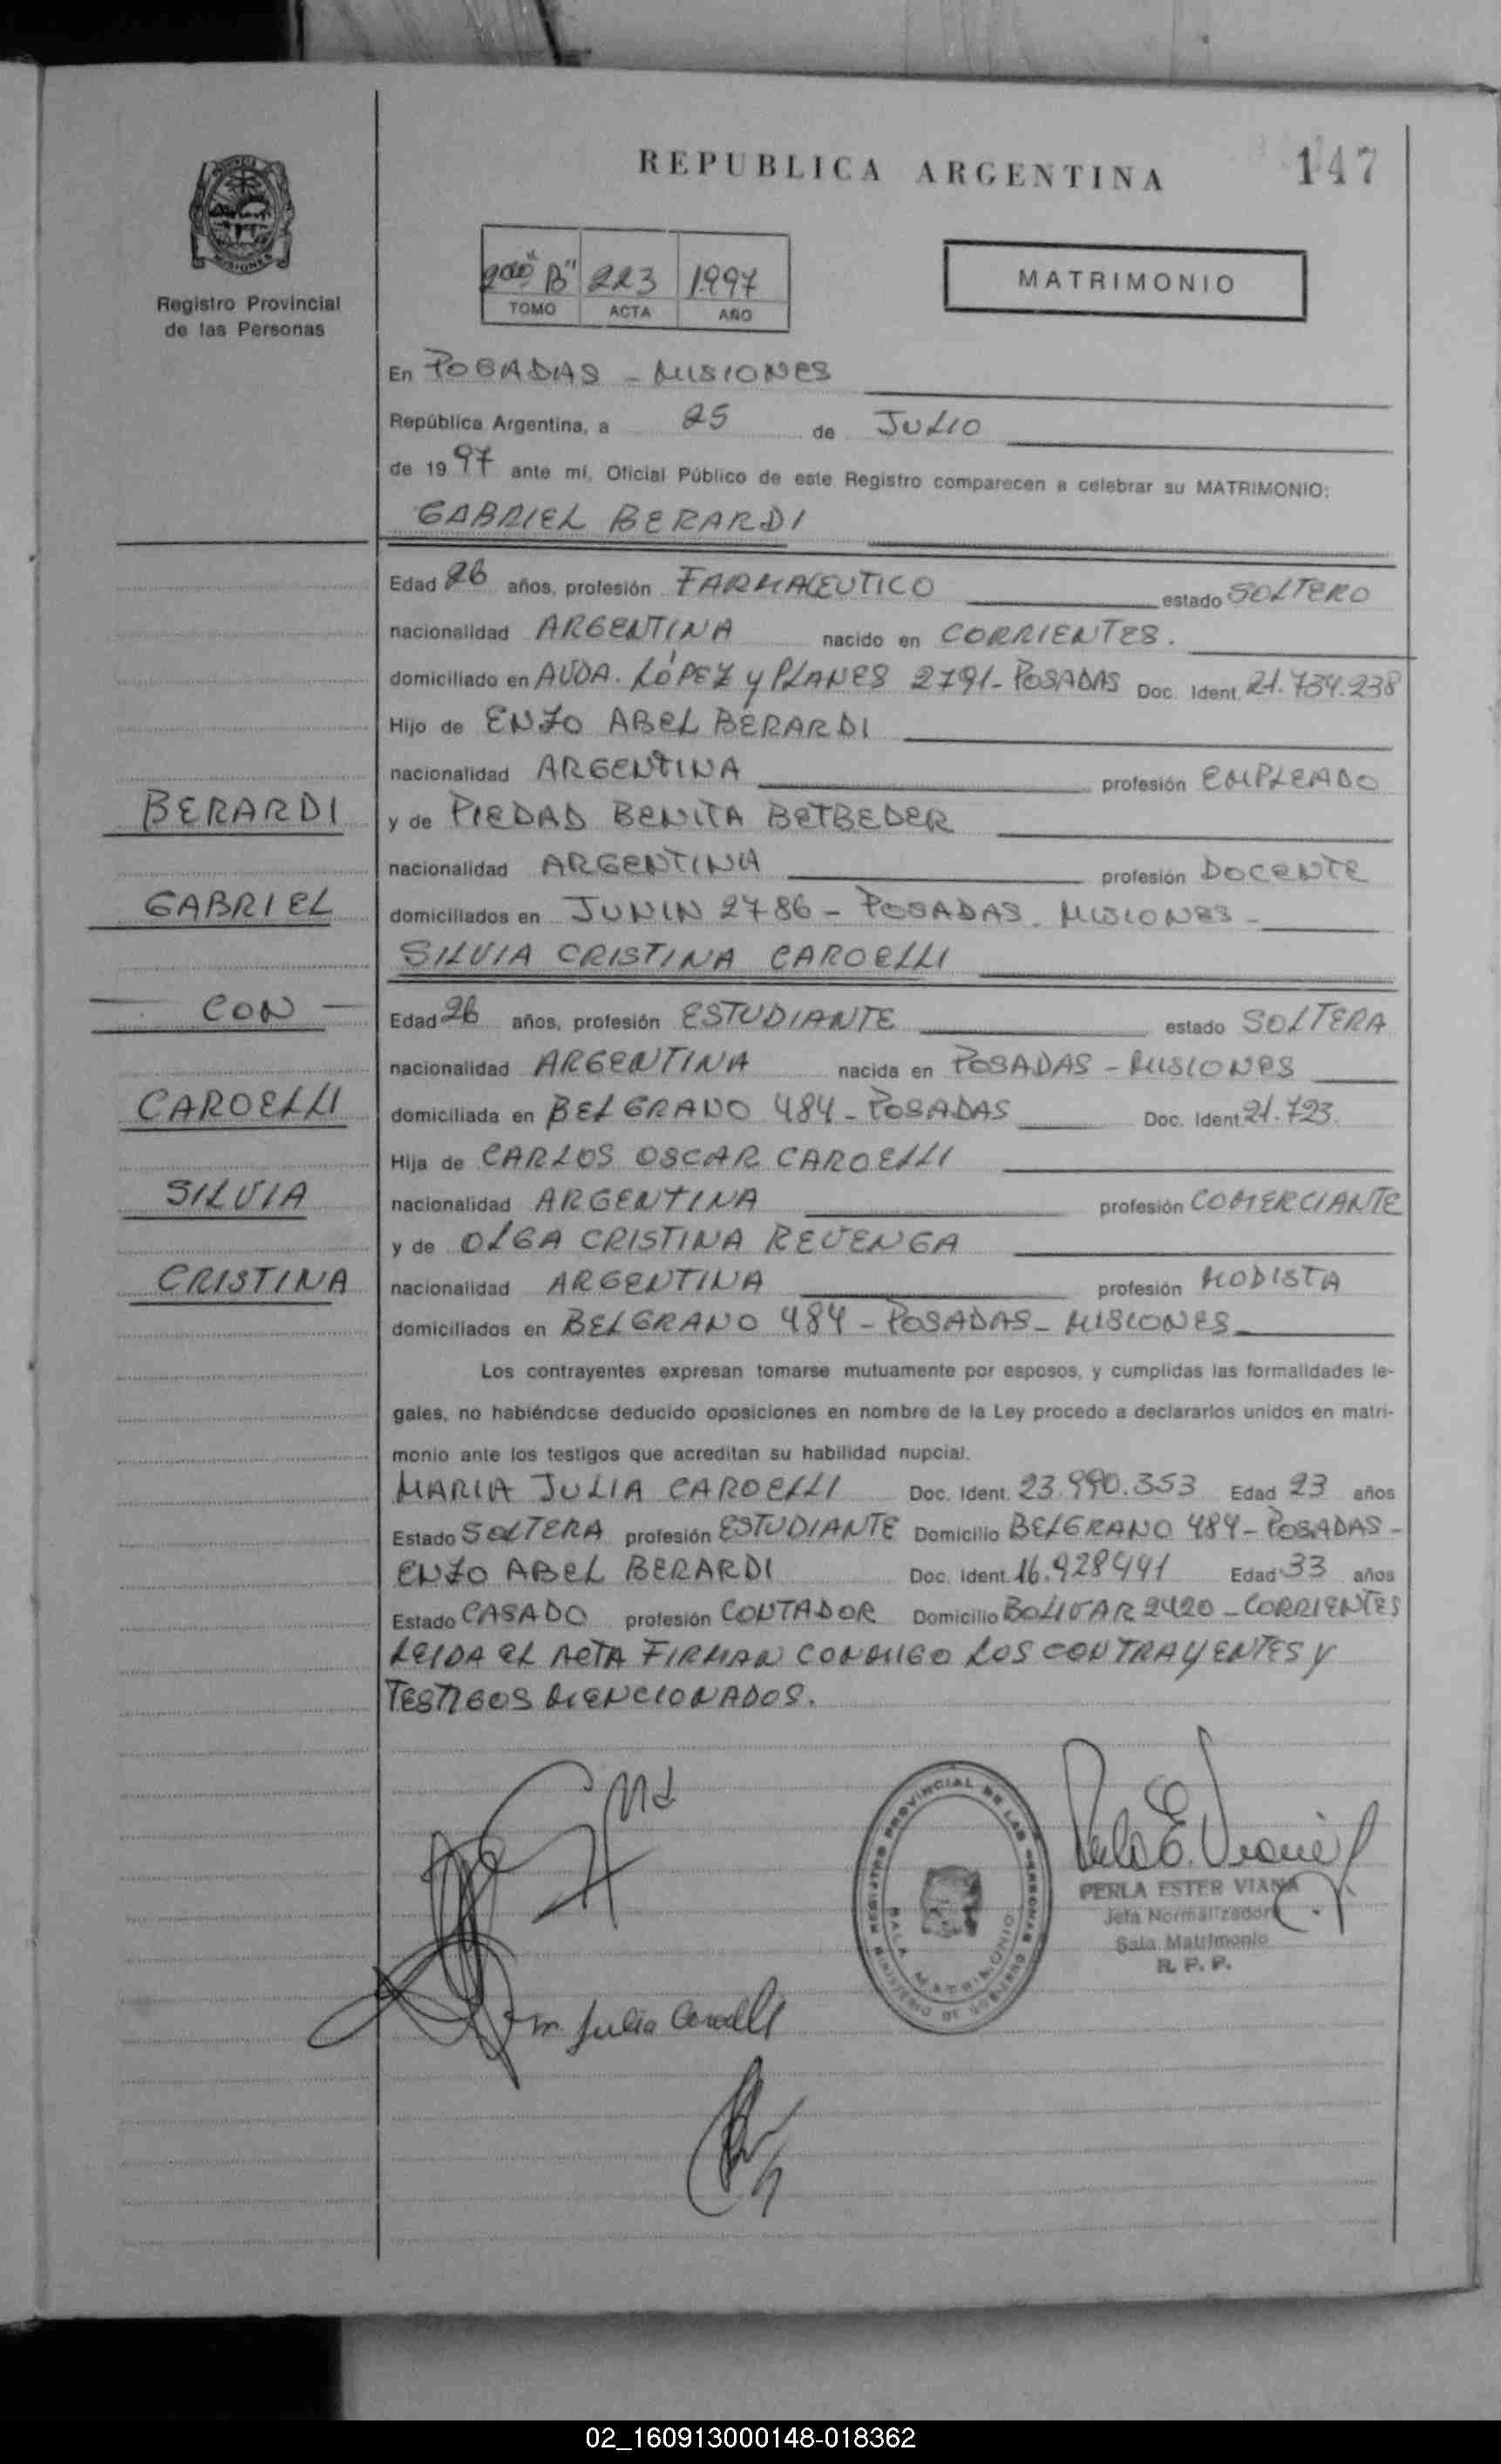 REPUBLICA ARGENTINA
147
Registro Provincial
de las Personas
2do "B" 223 1997
TOMO ACTA AÑO
MATRIMONIO
En POSADAS - MISIONES
República Argentina, a 25 de JULIO
de 19 97 ante mí, Oficial Público de este Registro comparecen a celebrar su MATRIMONIO:
GABRIEL BERARDI
Edad 26 años, profesión FARMACEUTICO estado SOLTERO
nacionalidad ARGENTINA nacido en CORRIENTES.
domiciliado en AVDA. LÓPEZ y PLANES 2791- POSADAS Doc. Ident. 21.734.238
Hijo de ENZO ABEL BERARDI
nacionalidad ARGENTINA profesión EMPLEADO
y de PIEDAD BENITA BETBEDER
nacionalidad ARGENTINA profesión DOCENTE
domiciliados en JUNIN 2786 - POSADAS - MISIONES -
SILVIA CRISTINA CAROELLI
Edad 26 años, profesión ESTUDIANTE estado SOLTERA
nacionalidad ARGENTINA nacida en POSADAS - MISIONES
domiciliada en BELGRANO 484 - POSADAS Doc. Ident. 21.723.
Hija de CARLOS OSCAR CAROELLI
nacionalidad ARGENTINA profesión COMERCIANTE
y de OLGA CRISTINA REVENGA
nacionalidad ARGENTINA profesión MODISTA
domiciliados en BELGRANO 484 - POSADAS - MISIONES
BERARDI
GABRIEL
- CON -
CAROELLI
SILVIA
CRISTINA
Los contrayentes expresan tomarse mutuamente por esposos, y cumplidas las formalidades le-
gales, no habiéndose deducido oposiciones en nombre de la Ley procedo a declararlos unidos en matri-
monio ante los testigos que acreditan su habilidad nupcial.
MARIA JULIA CAROELLI Doc. Ident. 23.990.353 Edad 23 años
Estado SOLTERA profesión ESTUDIANTE Domicilio BELGRANO 484 - POSADAS -
ENZO ABEL BERARDI Doc. Ident. 16.928441 Edad 33 años
Estado CASADO profesión CONTADOR Domicilio BOLIVAR 2420 - CORRIENTES
LEIDA EL ACTA FIRMAN CONMIGO LOS CONTRAYENTES Y
TESTIGOS MENCIONADOS.
REGISTRO PROVINCIAL DE LAS PERSONAS
SALA MATRIMONIO
MINISTERIO DE GOBIERNO
Perla E. Viana
PERLA ESTER VIANA
Jefa Normalizadora
Sala Matrimonio
R. P. P.
m. Julia Caroelli
02_160913000148-018362